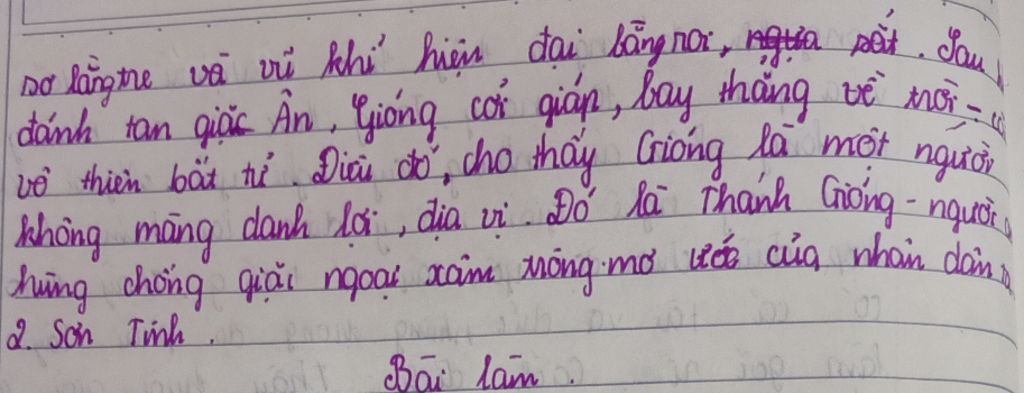 sơ bằng tre và vũ khí hiện đại bằng roi, ngựa sắt. Sau
đánh tan giặc Ân, Gióng cởi giáp, bay thẳng về trời -
vô thiên bất tử. Điều đó, cho thấy Gióng là một người
không màng danh lợi, địa vị. Đó là Thánh Gióng - người
hùng chống giặc ngoại xâm trong mơ ước của nhân dân
2. Sơn Tinh.
Bài làm.